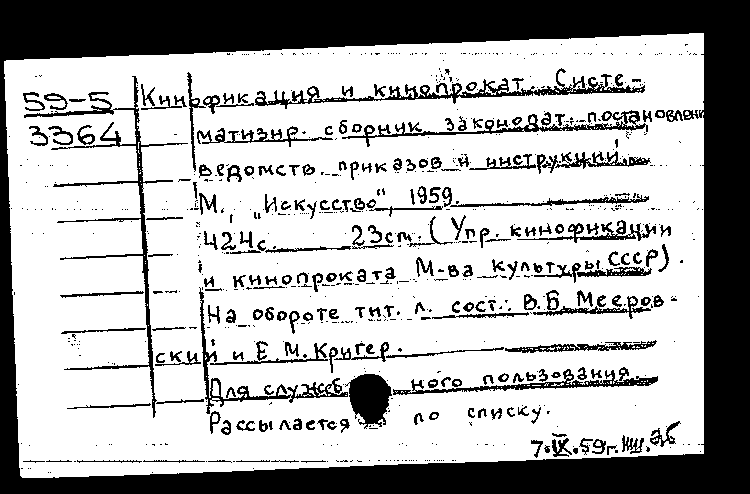 59-5 Кинофикация и кинопрокат. Систе-
3364 матизир. сборник законодат. постановлений,
ведомств. приказов и инструкций.
М., „Искусство", 1959.
424с. 23см. (Упр. кинофикации
и кинопроката М-ва культуры СССР).
На обороте тит. л. сост.: В.Б. Мееров-
ский и Е.М. Кригер.
Для служебного пользования.
Рассылается по списку.
7.IX.59г.